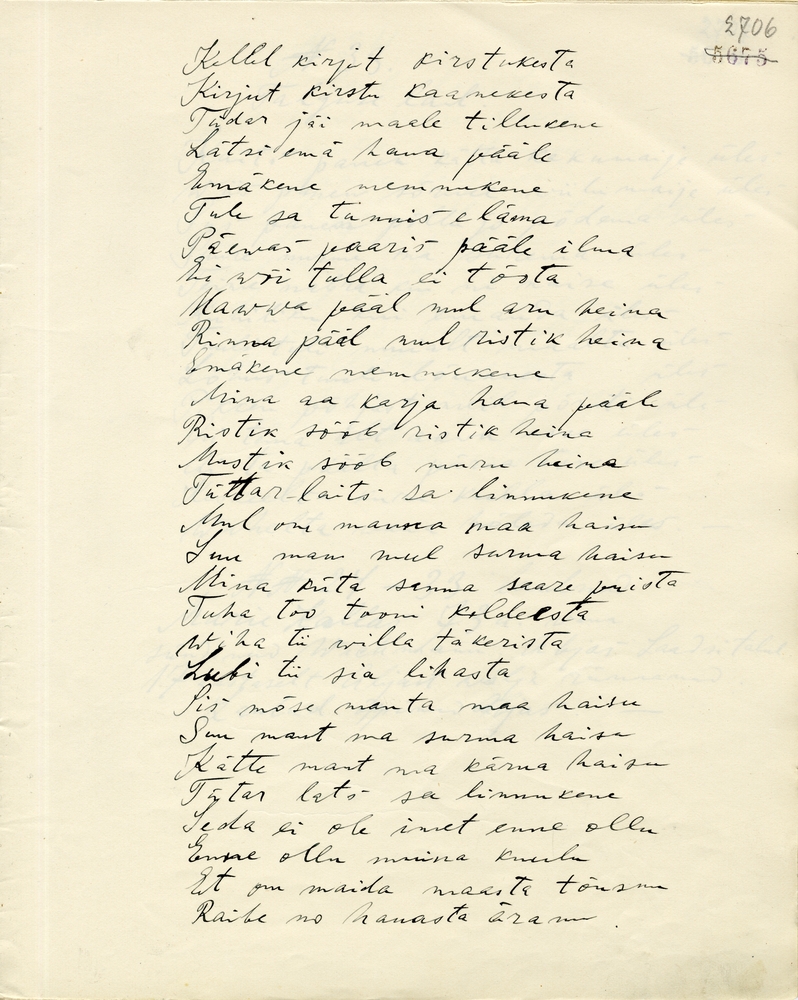 2706
5675
Kellel kirjut kirstukesta
Kirjut kirstu kaanekesta
Tüdar jäi maale tillukene
Lätsi emä haua pääle
Emäkene memmekene
Tule sa tännis eläma
Päewas paaris pääle ilma
Ei wõi tulla ei tõota
Hawwa pääl mul aru heina
Rinna pääl mul ristik heina
Emäkene memmekene
Mina aa karja haua pääle
Ristik sööb ristik heina
Mustik sööb muru heina
Tüttar laits sa linnukene
Mul om manna maa haisu
Suu man mul surma haisu
Mina küta sanna saare puista
Tuha too tooni koldeesta
Wiha tii willa täkerista
Lubi tii sia lihasta
Sis mõse manta maa haisu
Suu mant ma surma haisu
Kätte mant ma kärna haisu
Tütar lats sa linnukene
Seda ei ole imet enne ollu
Enne ollu muina kuulu
Et om maida maasta tõusnu
Raibe no hauasta äranu